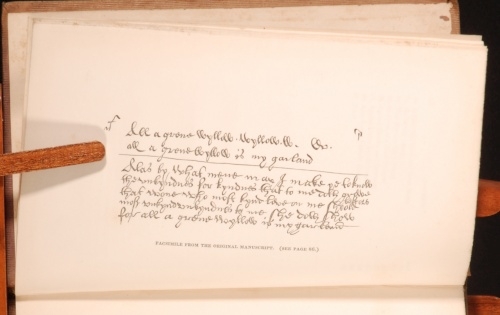 All a grene wyllow . wyllow . w . &c.
all a grene wyllow is my garland
Alas by what mene may I make ye to know
the unkyndnes for kyndnes that to me doth growe
that wone who most kynd love on me shold
most unkynd unkyndnes to me she doth show
for all a grene wyllow is my garland
FACSIMILE FROM THE ORIGINAL MANUSCRIPT. (SEE PAGE